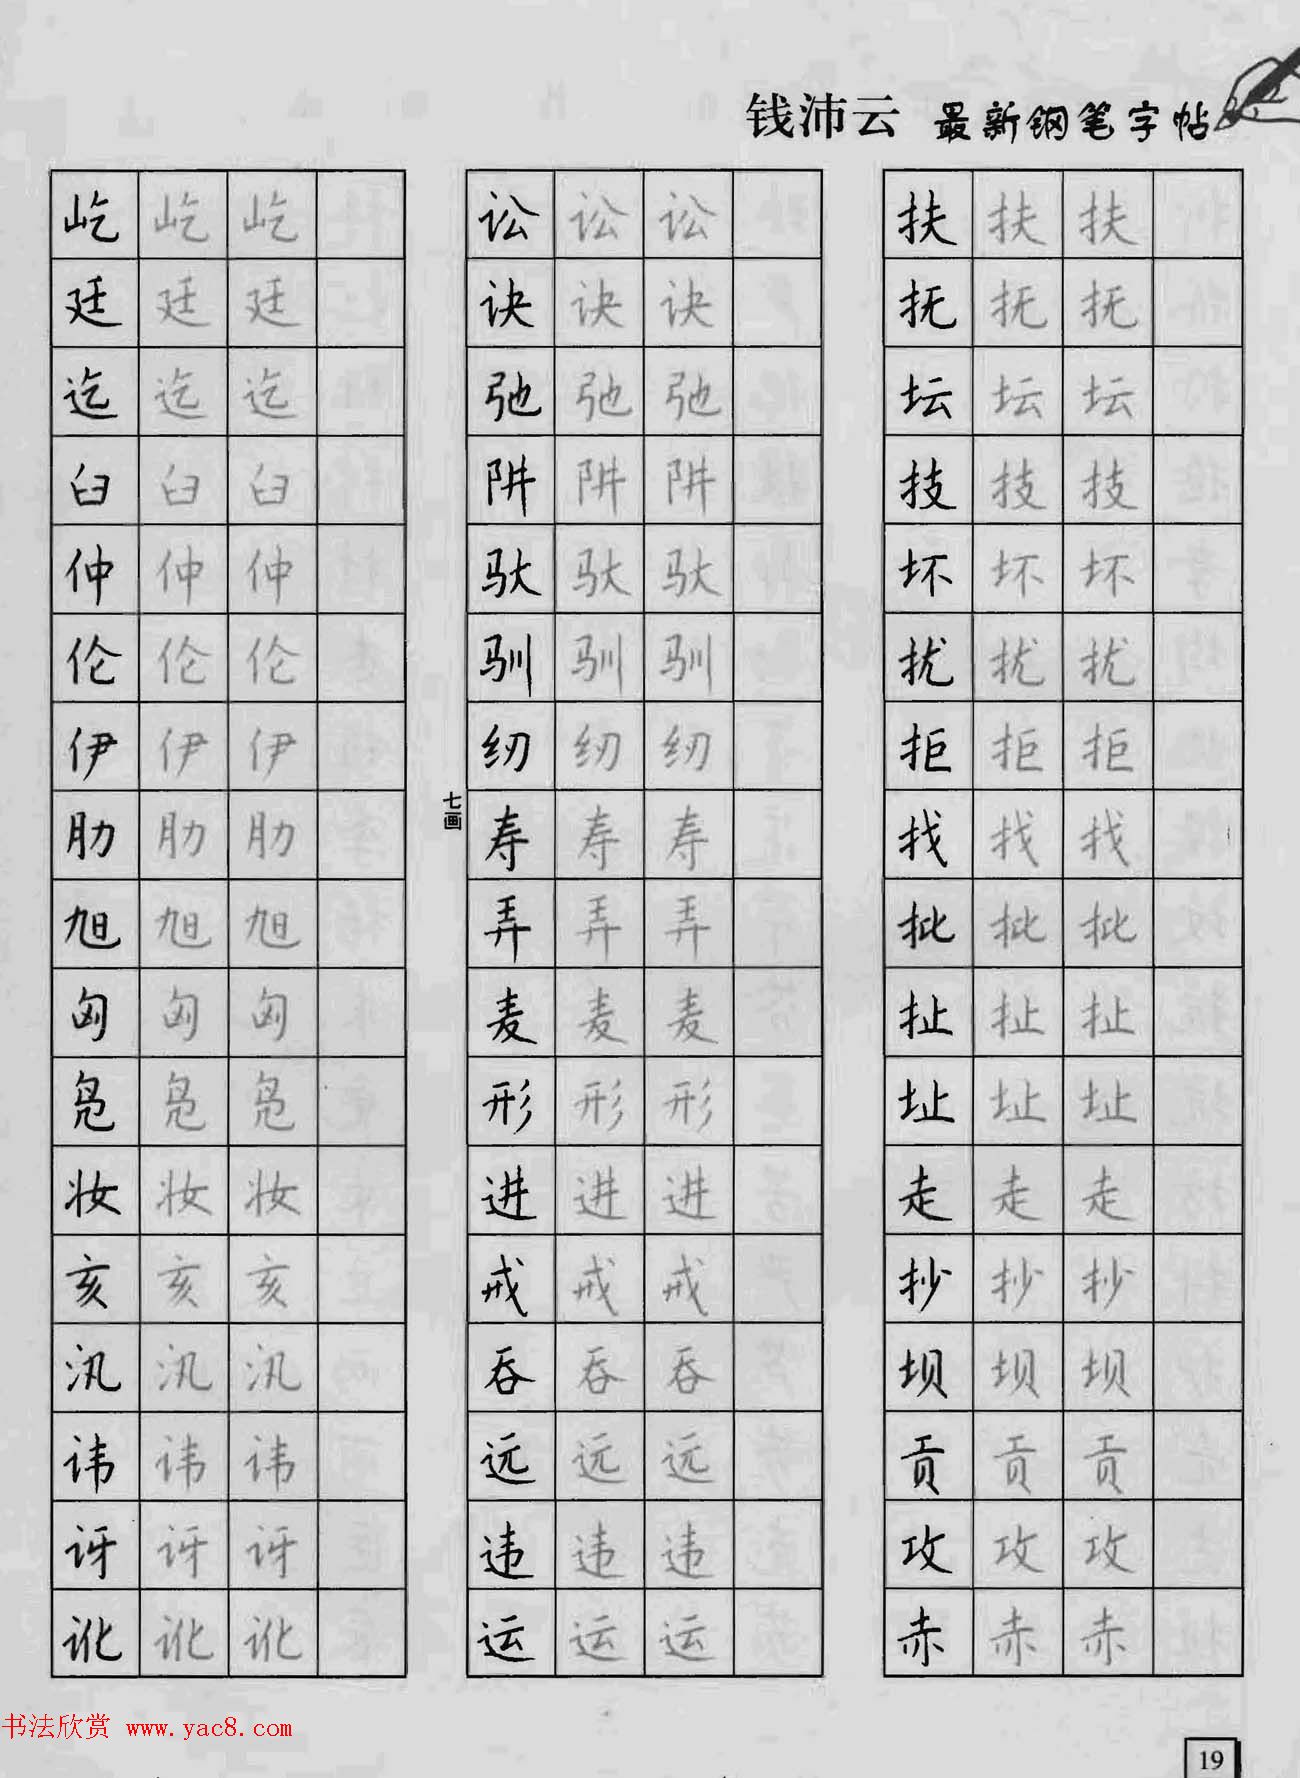 钱沛云 最新钢笔字帖
屹 屹 屹
廷 廷 廷
迄 迄 迄
臼 臼 臼
仲 仲 仲
伦 伦 伦
伊 伊 伊
肋 肋 肋
旭 旭 旭
匈 匈 匈
凫 凫 凫
妆 妆 妆
亥 亥 亥
汛 汛 汛
讳 讳 讳
讶 讶 讶
讹 讹 讹
讼 讼 讼
诀 诀 诀
弛 弛 弛
阱 阱 阱
驮 驮 驮
驯 驯 驯
纫 纫 纫
七画
寿 寿 寿
弄 弄 弄
麦 麦 麦
形 形 形
进 进 进
戒 戒 戒
吞 吞 吞
远 远 远
违 违 违
运 运 运
扶 扶 扶
抚 抚 抚
坛 坛 坛
技 技 技
坏 坏 坏
扰 扰 扰
拒 拒 拒
找 找 找
批 批 批
扯 扯 扯
址 址 址
走 走 走
抄 抄 抄
坝 坝 坝
贡 贡 贡
攻 攻 攻
赤 赤 赤
书法欣赏 www.yac8.com
19